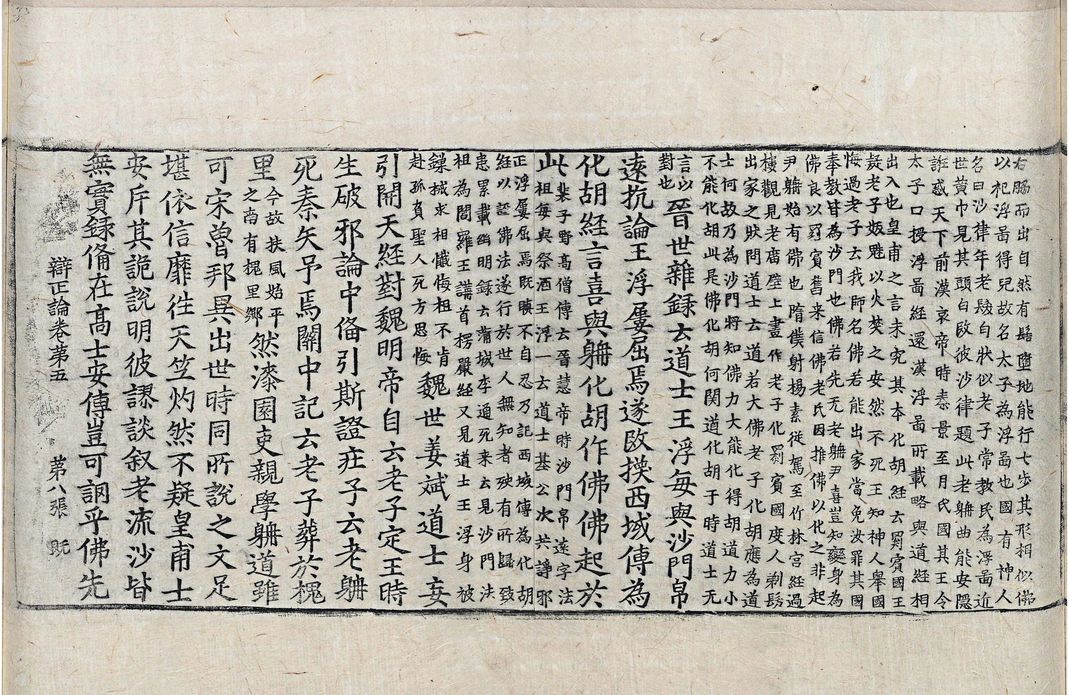 右腋而出自然有髭墮地能行七步其形相似佛
以祀浮啚得兒故名太子為浮啚也國有神人
名曰沙律年老髮白狀似老子常教民為浮啚近
世黃巾見其頭白改彼沙律題此老聃曲能安隱
誑惑天下前漢哀帝時秦景至月氏國其王令
太子口授浮啚經還漢浮啚所載略與道經相
出入也皇甫之言未究其本化胡經云罽賓國王
疑老子妖魅以火焚之安然不死王知神人舉國
悔過老子云我師名佛若能出家當免汝罪其國
奉教皆為沙門也佛若先无老聃尹喜豈知變身為
佛良以罽賓舊来信佛老氏因推佛以化之非起
尹聃始有佛也隋僕射楊素從駕至竹林宮經過
樓觀見老廟壁上畫作老子化罽賓國度人剃髮
出家之狀問道士云道若大佛老子化胡應為道
士何故乃為沙門將知佛力大能化得胡道力小
不能化胡此是佛化胡何関道化胡于時道士无
言以
對也
晉世雜錄云道士王浮每與沙門帛
遠抗論王浮屢屈焉遂改換西域傳為
化胡經言喜與聃化胡作佛佛起於
此
裴子野高僧傳云晉慧帝時沙門帛遠字法
祖每與祭酒王浮一云道士基公次共諍邪
正浮屢屈焉既瞋不自忍乃記西域傳為化胡
經以誣佛法遂行於世人無知者殃有所歸致
患累載幽明錄云蒲城李通死来云見沙門法
祖為閻羅王講首楞嚴經又見道士王浮身被
鏁械求祖懺悔祖不肯
赴孤負聖人死方思悔
魏世姜斌道士妄
引開天經對魏明帝自云老子定王時
生破邪論中俻引斯證莊子云老聃
死秦矢弔焉關中記云老子葬於槐
里
今故扶風始平
之南有槐里鄉
然漆園吏親學聃道雖
可宋曾邦異出世時同所說之文足
堪依信靡徃天竺灼然不疑皇甫士
安斥其詭說明彼謬談叙老流沙皆
無實錄俻在高士安傳豈可詗乎佛先
辯正論卷第五　第八張　旣